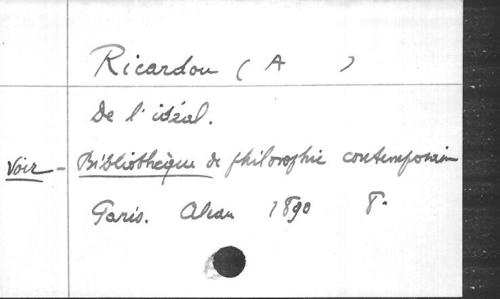 Ricardou ( A )
De l'idéal.
Voir - Bibliothèque de philosophie contemporain
Paris. Alcan 1890 8°